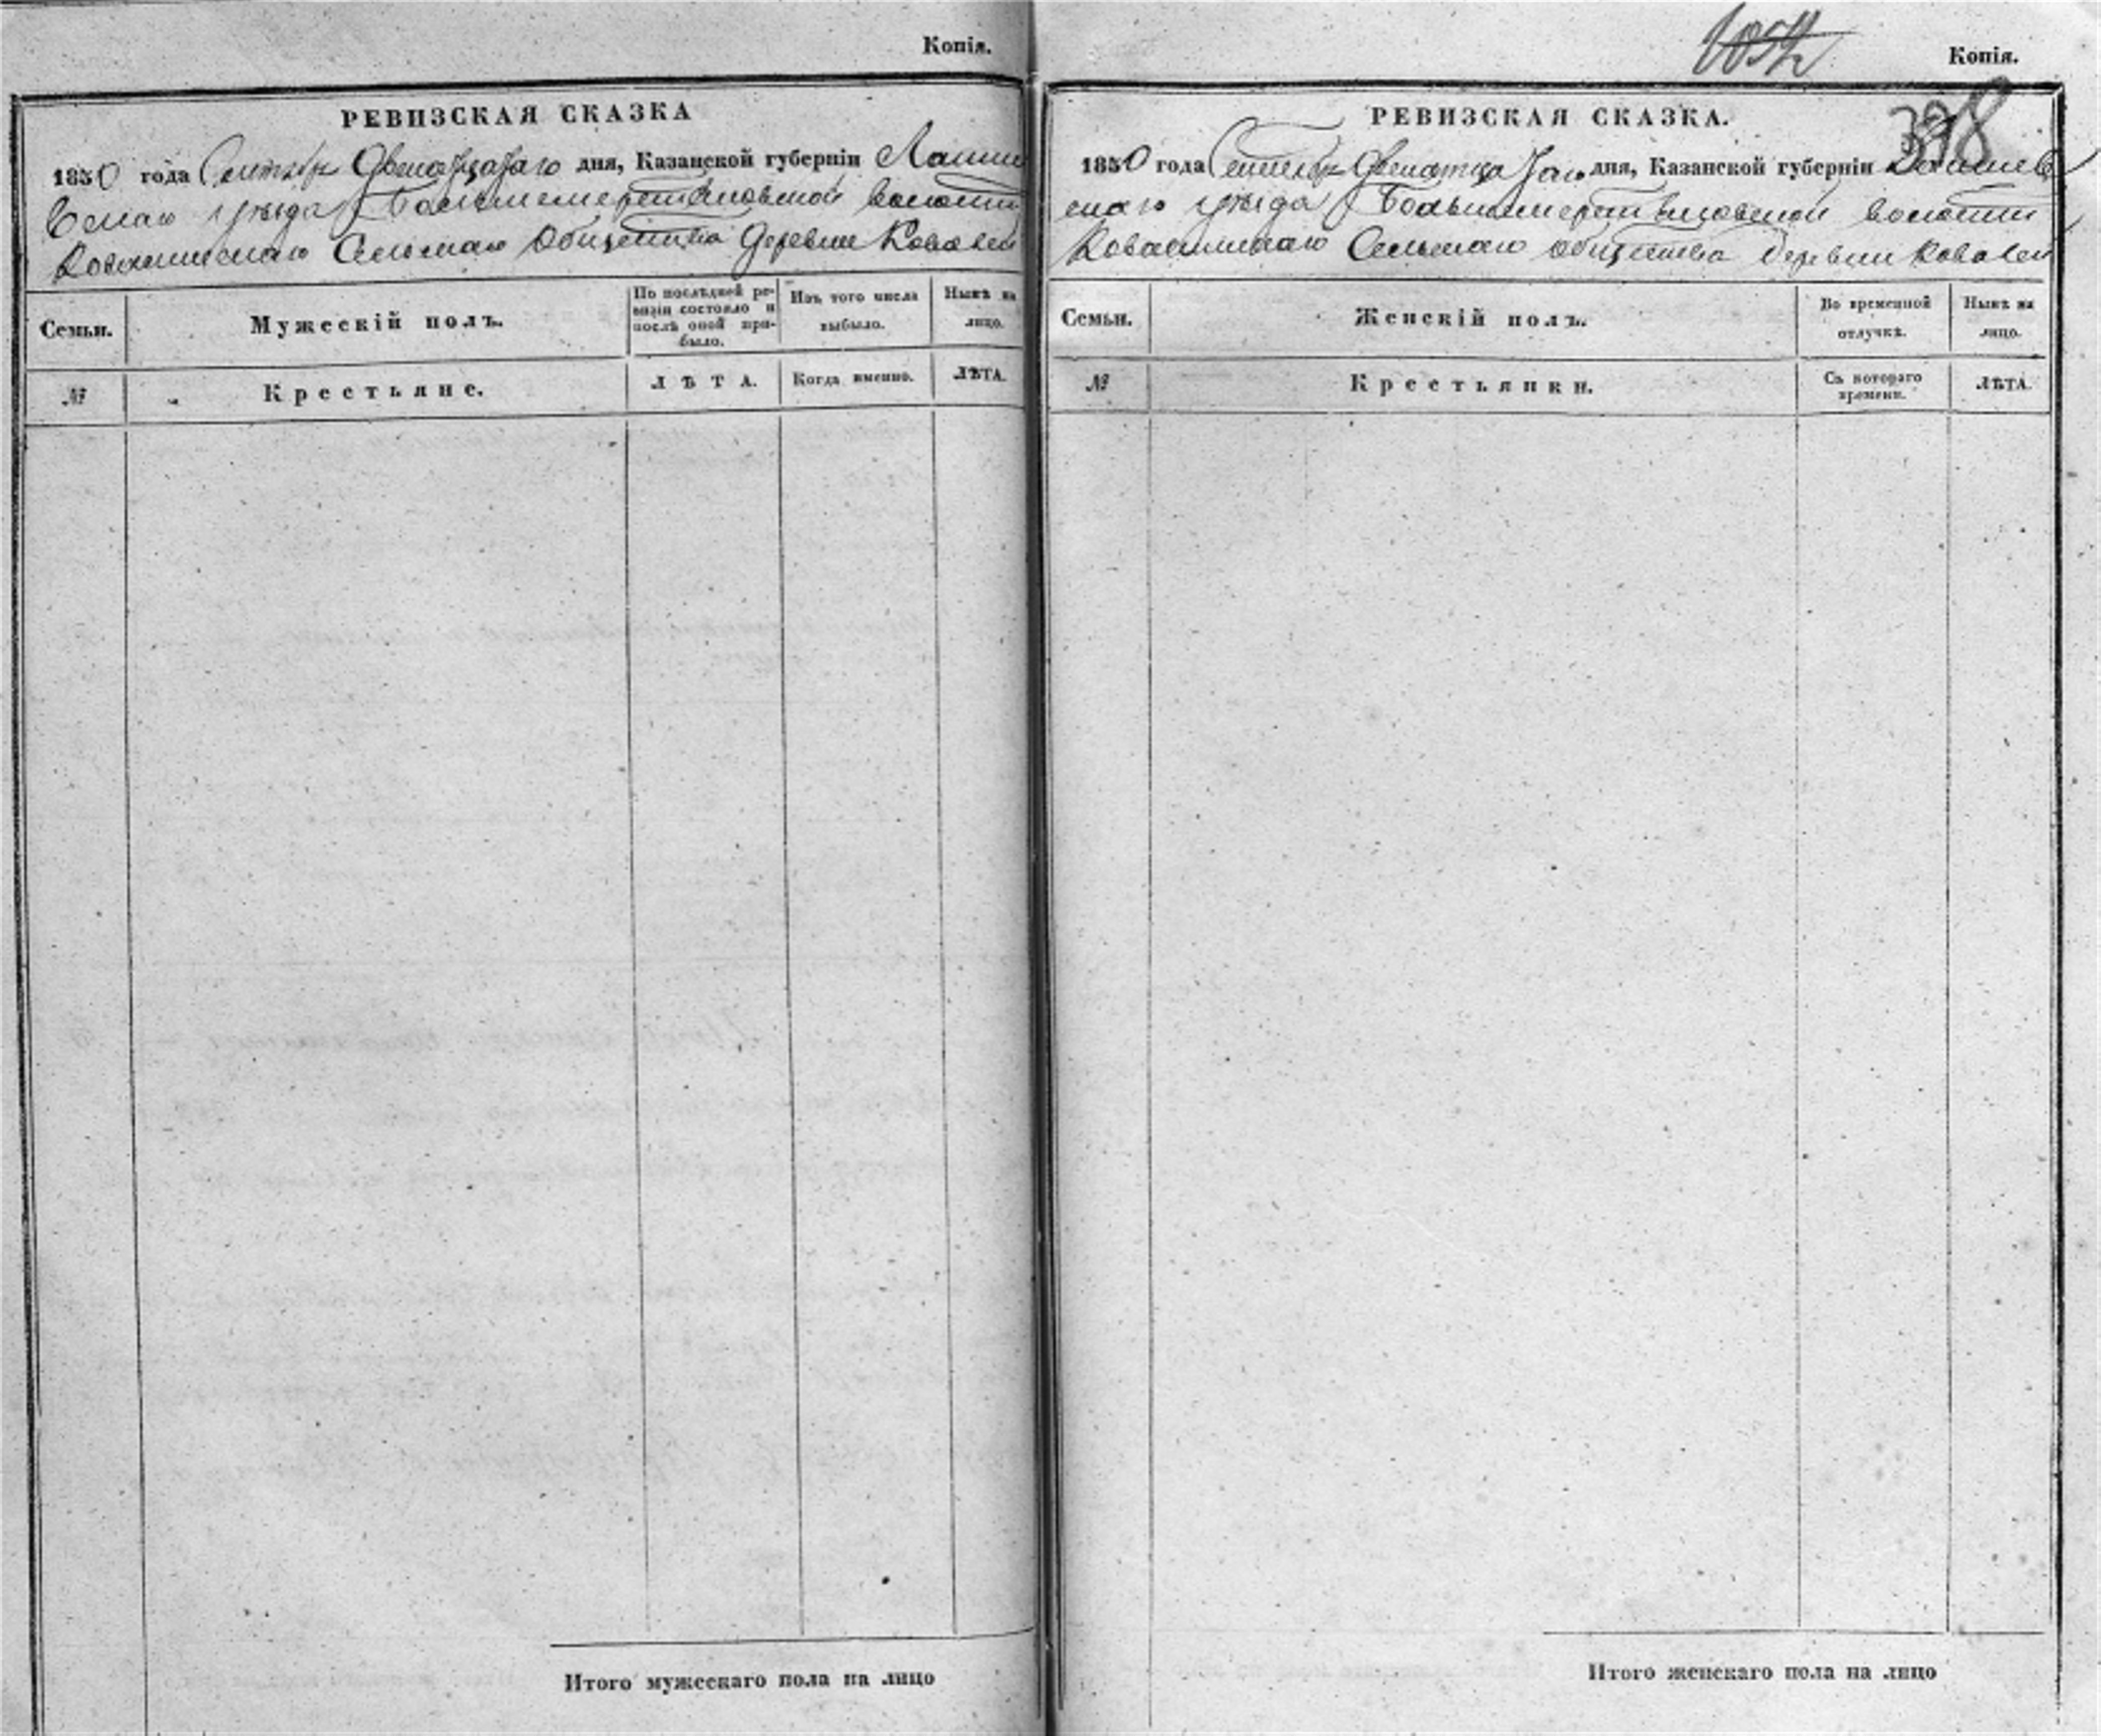 Копія.
РЕВИЗСКАЯ СКАЗКА
1850 года Сентября Двенадцатаго дня, Казанской губерніи Лаише
вскаго уѣзда Большемеретяковской волости
Ковалинскаго Сельскаго Общества Деревни Ковалей
Семьи.
Мужескій полъ.
По послѣдней ре-
визіи состояло и
послѣ оной при-
было.
Изъ того числа
выбыло.
Нынѣ на
лицо.
№
Крестьяне.
ЛѢТА.
Когда именно.
ЛѢТА.
Итого мужескаго пола на лицо
1052
Копія.
398
РЕВИЗСКАЯ СКАЗКА.
1850 года Сентября Двенатцатаго дня, Казанской губерніи Лаишев
скаго уѣзда Большемеретяковской волости
Ковалинскаго Сельскаго общества деревни Ковалей
Семьи.
Женскій полъ.
Во временной
отлучкѣ.
Нынѣ на
лицо.
№
Крестьянки.
Съ котораго
времени.
ЛѢТА.
Итого женскаго пола на лицо